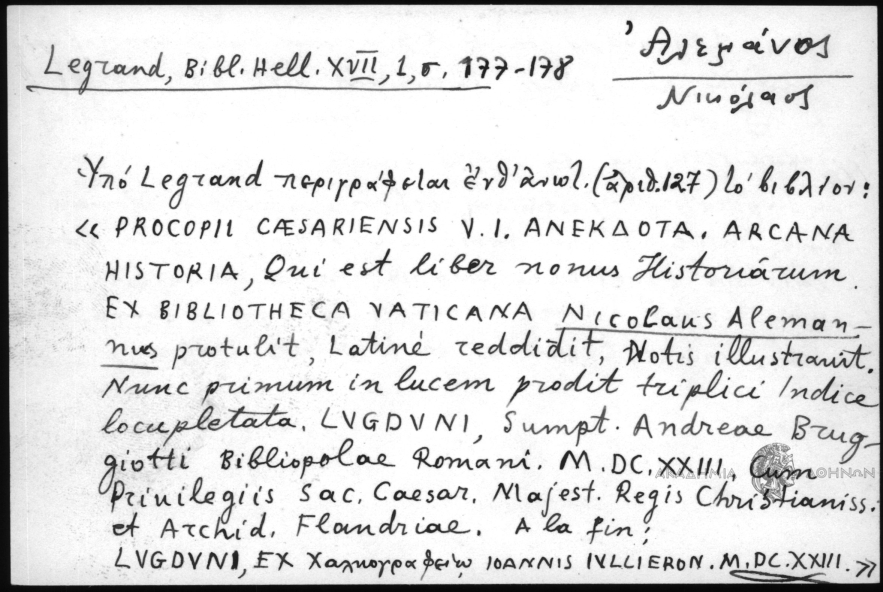 Legrand, Bibl. Hell. XVII, 1, σ. 177-178
Ἀλεμάνος
Νικόλαος
Ὑπό Legrand περιγράφεται ἐνθ' ἀνωτ. (ἀριθ. 127) τό βιβλίον:
« PROCOPII CÆSARIENSIS V. I. ANEKΔOTA. ARCANA
HISTORIA, Qui est liber nonus Historiárum.
EX BIBLIOTHECA VATICANA Nicolaus Aleman-
nus protulit, Latinè reddidit, Notis illustrauit.
Nunc primum in lucem prodit triplici Indice
locupletata. LVGDVNI, Sumpt. Andreae Brug-
giotti Bibliopolae Romani. M.DC.XXIII. Cum
Priuilegiis Sac. Caesar. Majest. Regis Christianiss.
et Archid. Flandriae. A la fin:
LVGDVNI, EX χαλκογραφείῳ IOANNIS IVLLIERON. M.DC.XXIII. »
ΑΚΑΔΗΜΙΑ ΑΘΗΝΩΝ